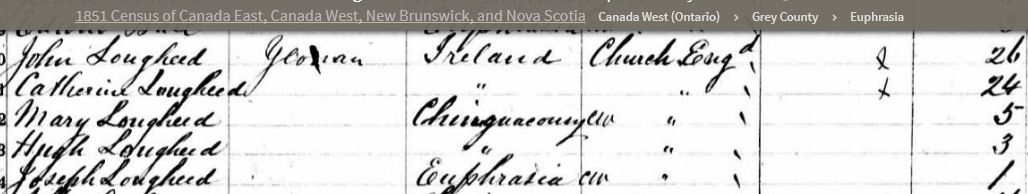 1851 Census of Canada East, Canada West, New Brunswick, and Nova Scotia Canada West (Ontario) › Grey County › Euphrasia
John Lougheed Yeoman Ireland Church Engd 26
Catherine Lougheed " " 24
Mary Lougheed Chinguacousy CW " 5
Hugh Lougheed " " 3
Joseph Lougheed Euphrasia CW " 1